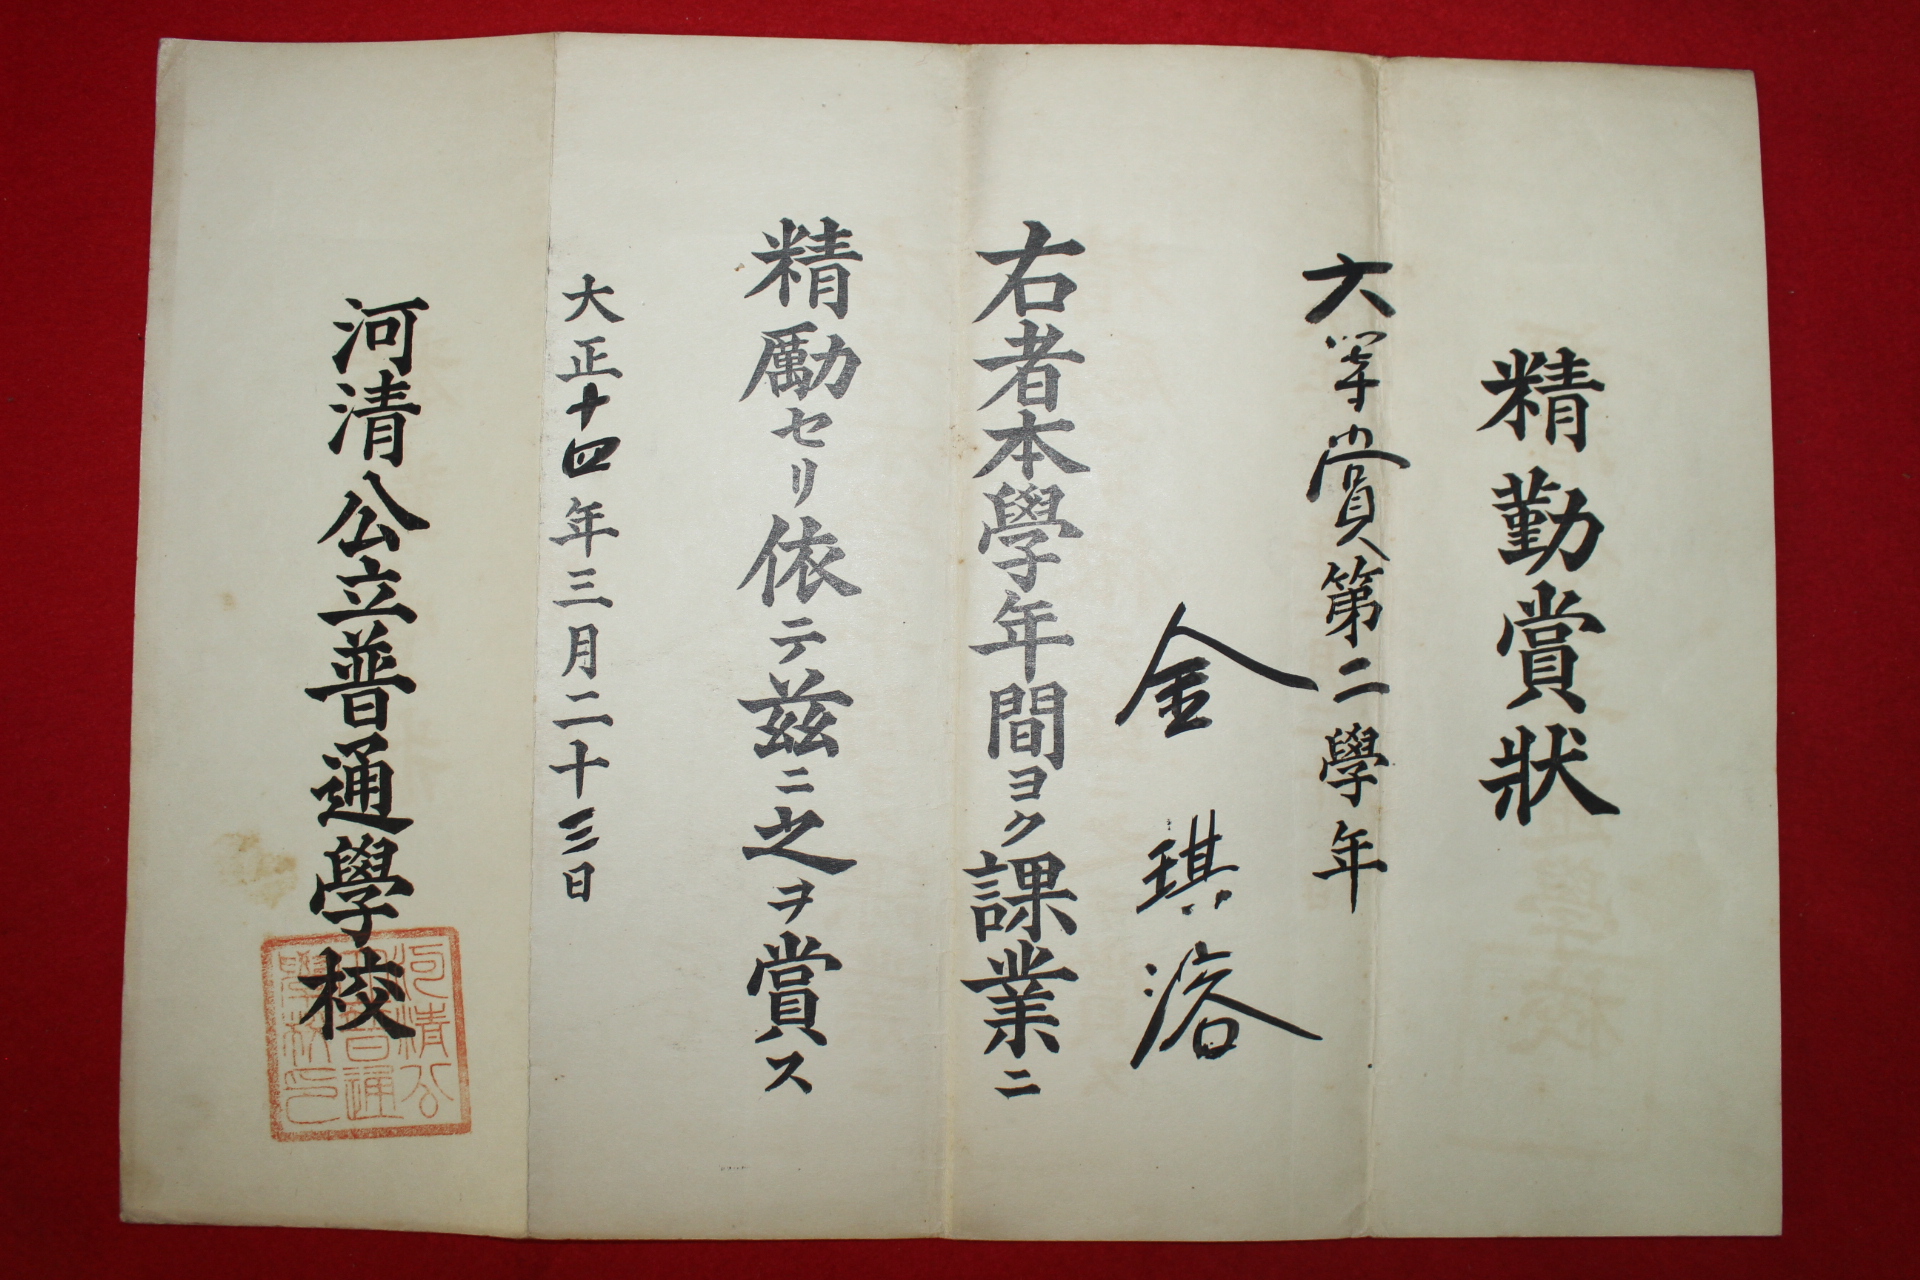 精勤賞狀
六等賞第二學年
金琪溶
右者本學年間ヨク課業ニ
精勵セリ依テ茲ニ之ヲ賞ス
大正十四年三月二十三日
河清公立普通學校
河清公
立普通
學校印